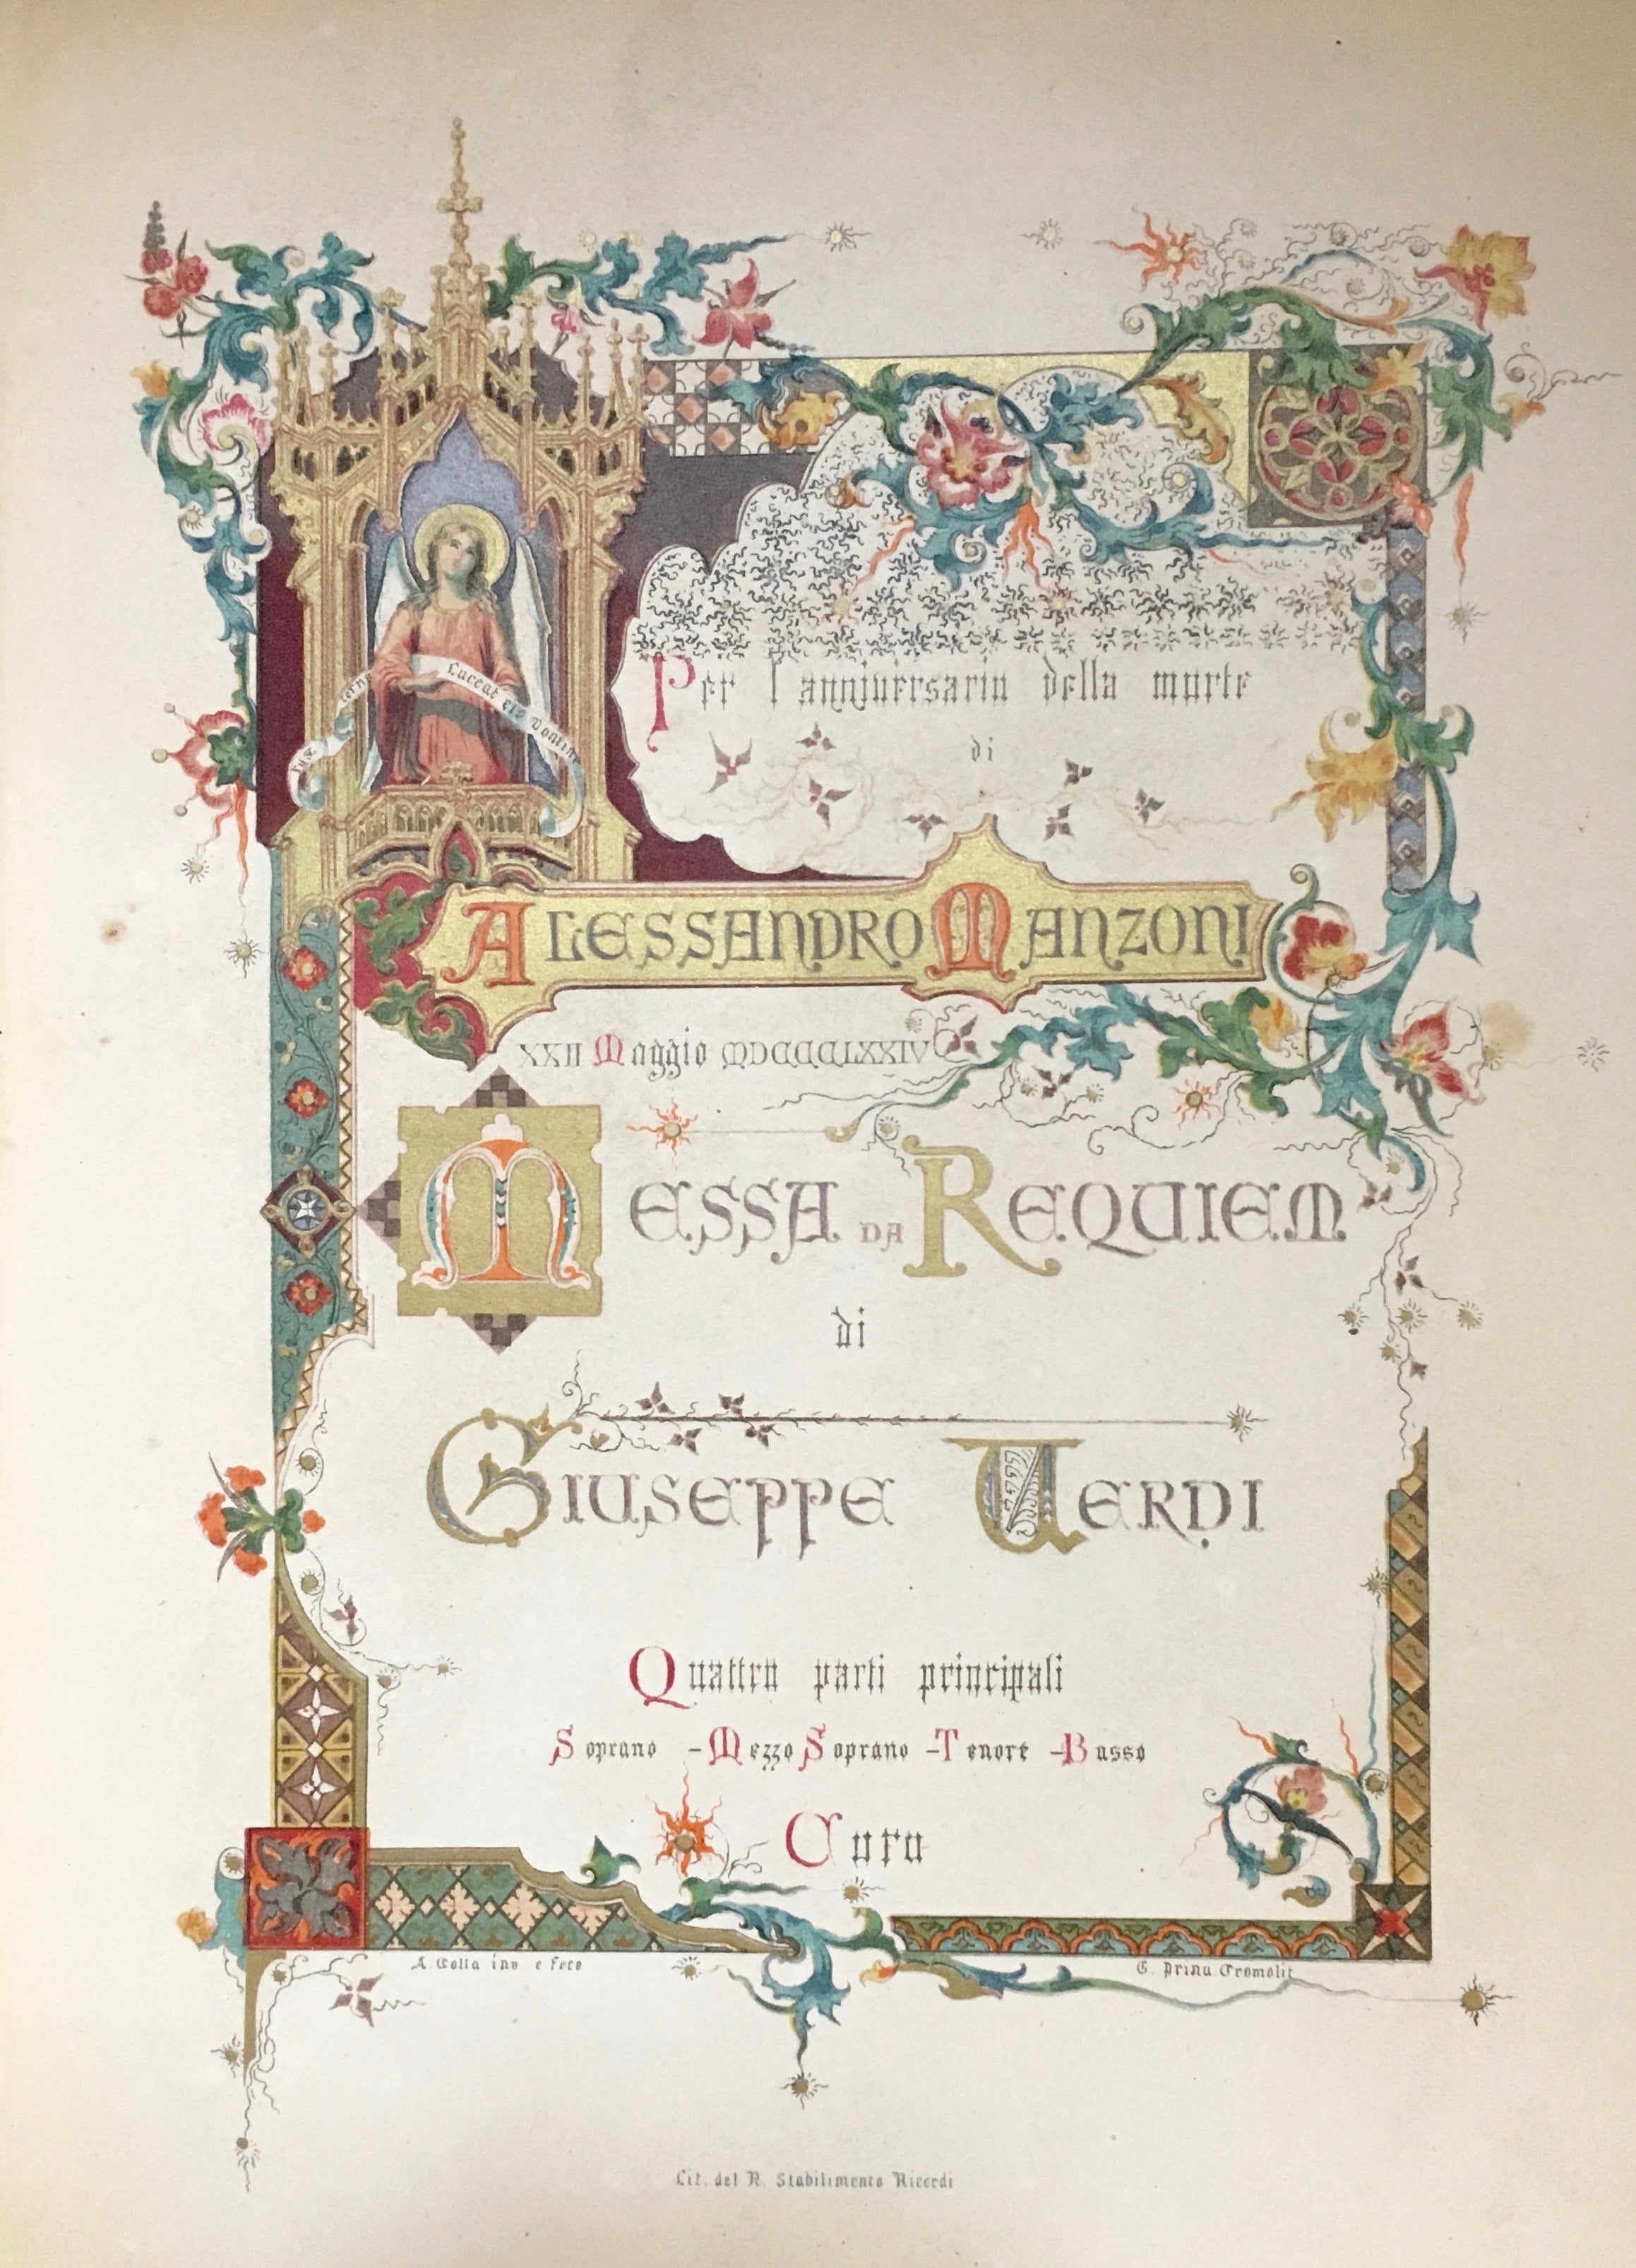 Lux eterna Luceat eis Domine
Per l anniversario della morte
di
ALESSANDRO MANZONI
XXII Maggio MDCCCLXXIV
MESSA DA REQUIEM
di
GIUSEPPE VERDI
Quattro parti principali
Soprano - Mezzo Soprano - Tenore - Basso
Coro
A Colla inv e fece
G. Prinu. Cromolit
Lit. del R. Stabilimento Ricordi